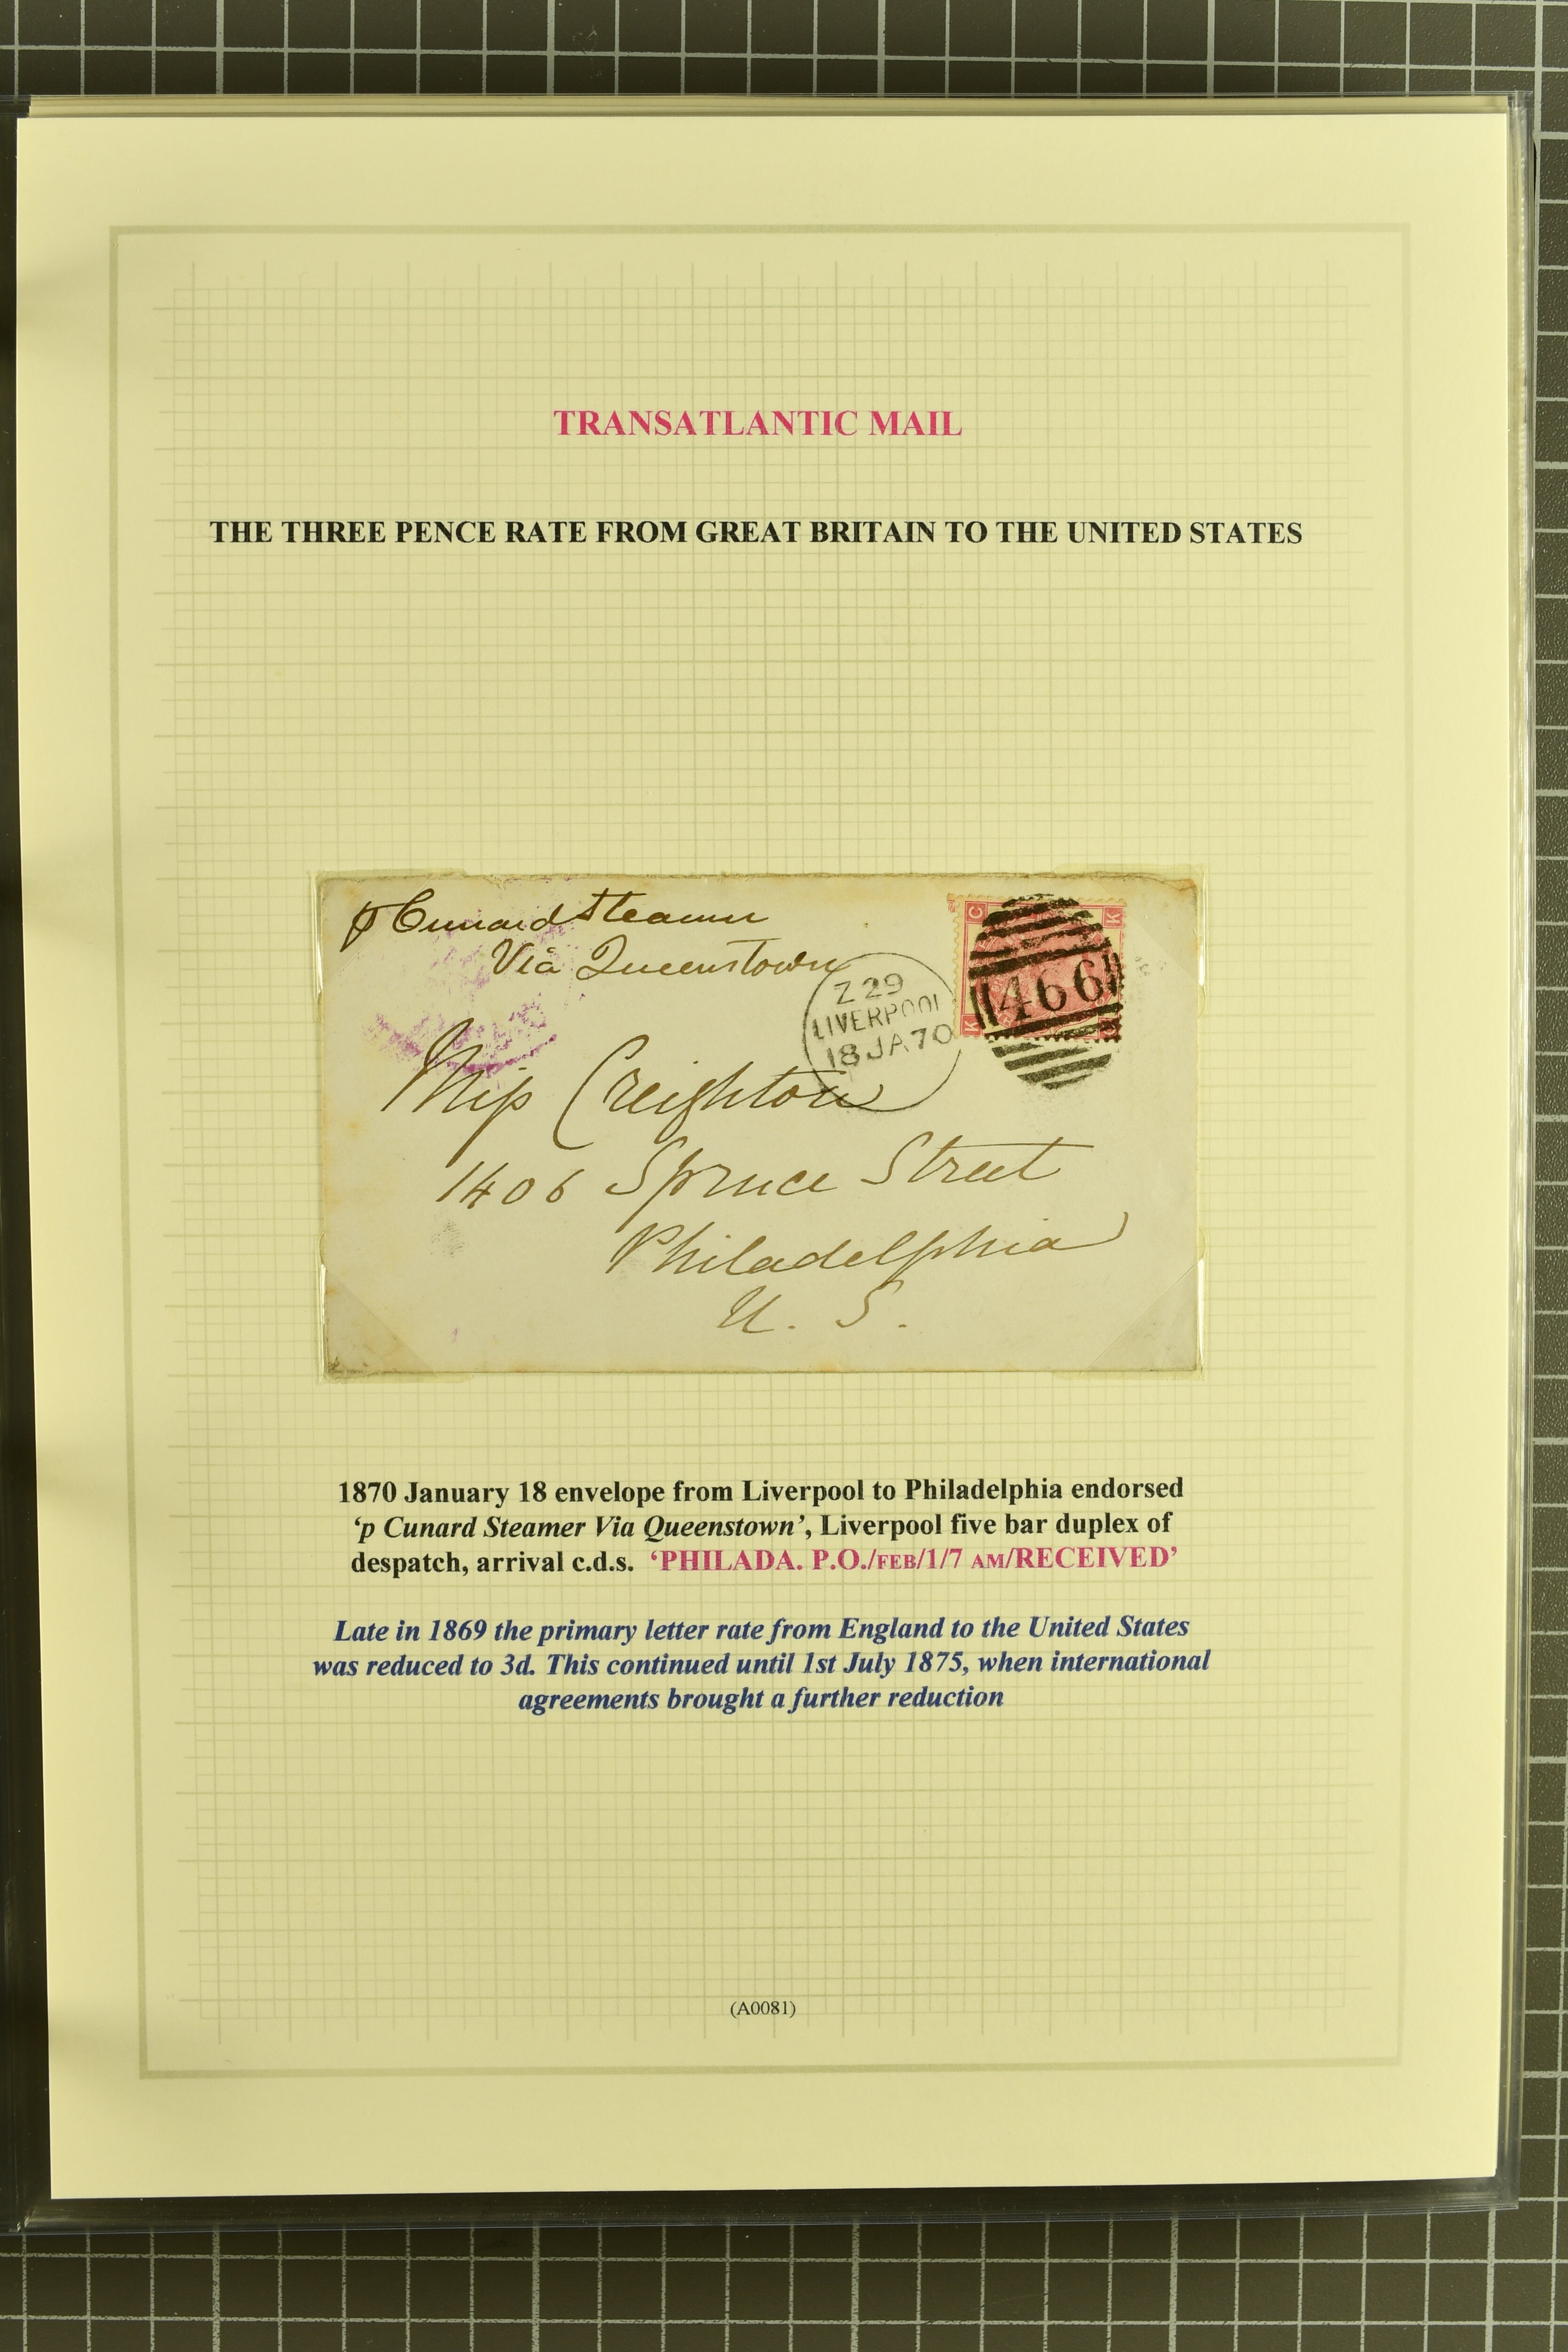 TRANSATLANTIC MAIL
THE THREE PENCE RATE FROM GREAT BRITAIN TO THE UNITED STATES
p Cunard Steamer
Via Queenstown
Z 29
LIVERPOOL
18 JA 70
C K
466
K
Miss Creighton
1406 Spruce Street
Philadelphia
U. S.
1870 January 18 envelope from Liverpool to Philadelphia endorsed
‘p Cunard Steamer Via Queenstown’, Liverpool five bar duplex of
despatch, arrival c.d.s. ‘PHILADA. P.O./FEB/1/7 AM/RECEIVED’
Late in 1869 the primary letter rate from England to the United States
was reduced to 3d. This continued until 1st July 1875, when international
agreements brought a further reduction
(A0081)